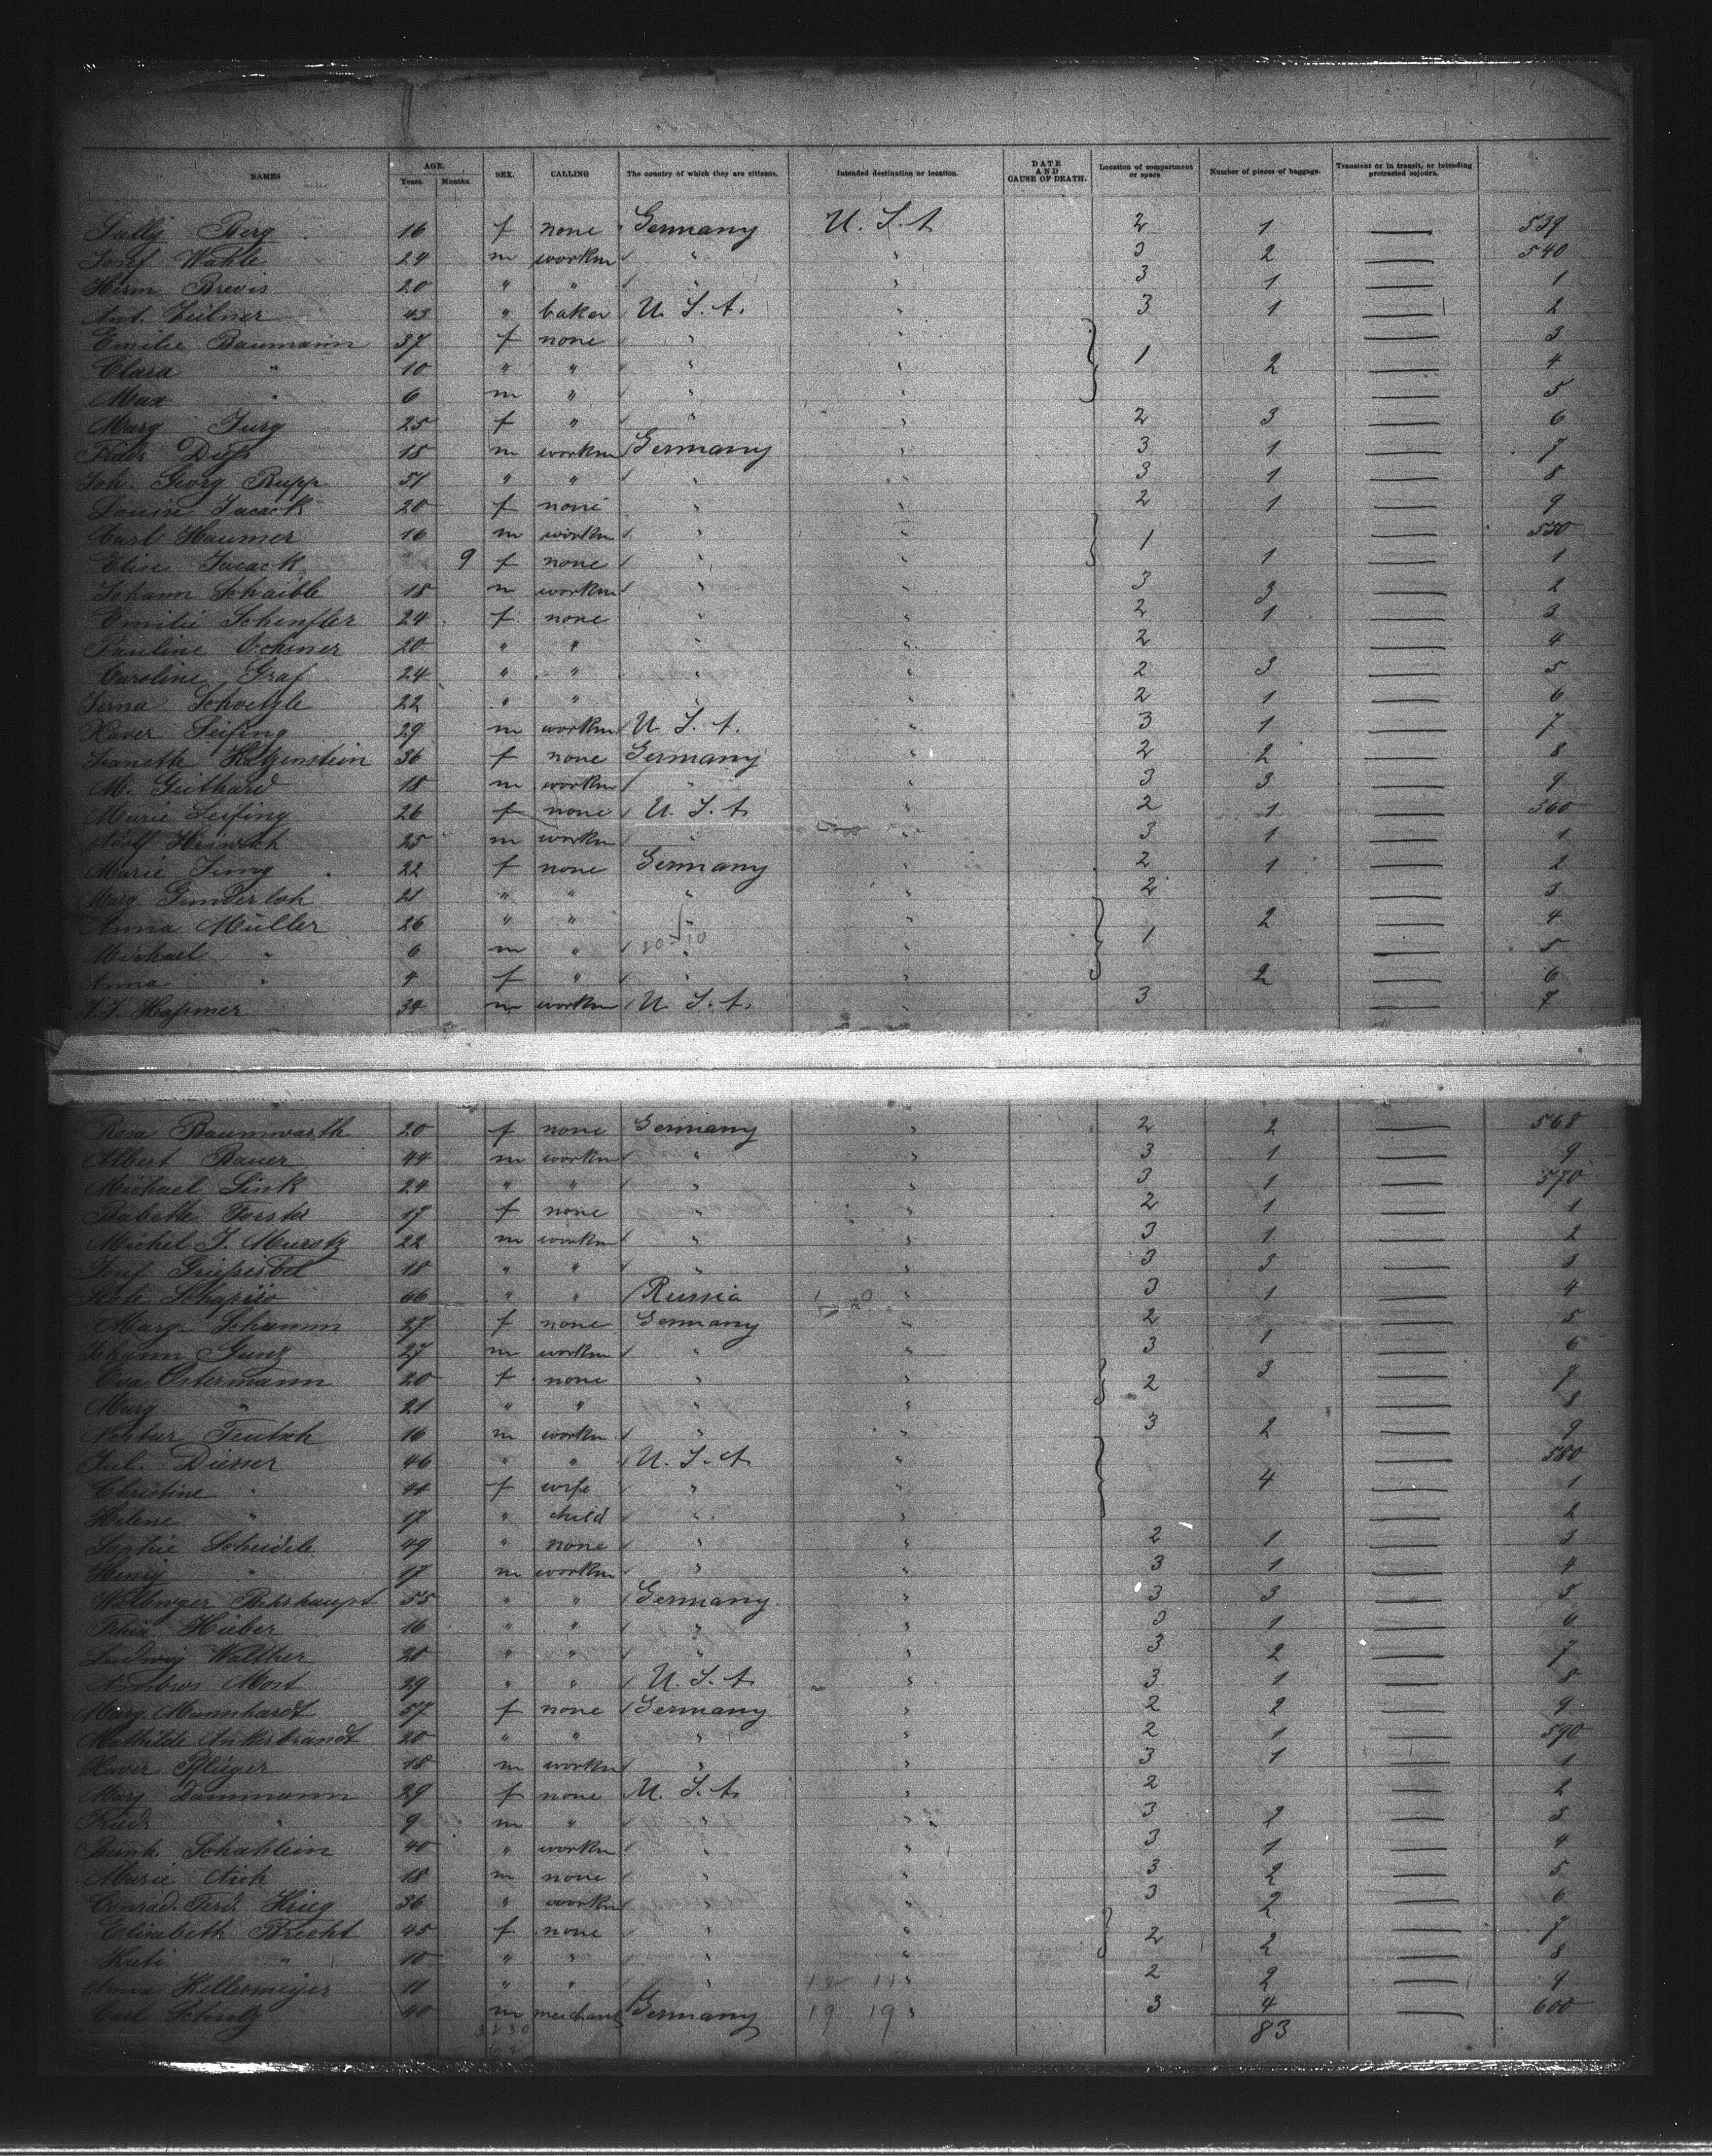 NAMES AGE. Years. Months. SEX. CALLING The country of which they are citizens. Intended destination or location. DATE AND CAUSE OF DEATH. Location of compartment or space Number of pieces of baggage. Transient or in transit, or intending protracted sojourn.
Sally Berg 16 f none Germany U.S.A 2 1 — 539
Josef Wahle 24 m workm " " 3 2 — 540
Herm Brevis 20 " " " " 3 1 — 1
Ant. 43 " baker U.S.A. " 3 1 — 2
Emilie Baumann 37 f none " " — 3
Clara " 10 " " " " 1 2 — 4
Max " 6 m " " " — 5
Marg Jurg 25 f " " " 2 3 — 6
18 m workm Germany " 3 1 — 7
Joh. Georg Rupp 51 " " " " 3 1 — 8
Louise Jacack 20 f none " " 2 1 — 9
Carl Haumer 16 m workm " " 1 — 550
Elise Jacack 9 f none " " 1 — 1
Johann Schaible 18 m workm " " 3 3 — 2
Emilie 24 f none " " 2 1 — 3
Pauline 20 " " " 2 — 4
Caroline Graf 24 " " " " 2 3 — 5
22 " " " " 2 1 — 6
Xaver Leifing 29 m workm U.S.A. " 3 1 — 7
Jeanette Katzenstein 36 f none Germany " 2 2 — 8
M. Guthard 18 m workm " " 3 3 — 9
Marie Leifing 26 f none U.S.A. " 2 1 — 560
Adolf Heinrich 25 m workm " " 3 1 — 1
Marie Jung 22 f none Germany " 2 1 — 2
Marg Gunderloh 21 " " " " 2 — 3
Anna Müller 26 " " " " 2 — 4
Michael " 6 m " " " 1 — 5
Anna " 4 f " " " 2 — 6
34 m workm U.S.A. " 3 — 7
Rosa Baumwarth 20 f none Germany " 2 2 — 568
Albert Bauer 44 m workm " " 3 1 — 9
Michael Link 24 " " " " 3 1 — 570
Babette Forster 17 f none " " 2 1 — 1
Michel J. 22 m workm " " 3 1 — 2
Josef 18 " " " " 3 3 — 3
Schapiro 66 " " Russia " 3 1 — 4
Marg. Schamm 27 f none Germany " 2 — 5
Johann Gunz 27 m workm " " 3 1 — 6
Eva Ostermann 20 f none " " 2 3 — 7
Marg " 21 " " " " — 8
Teutsch 16 m workm " " 3 2 — 9
Jul. Diesser 46 " " U.S.A. " — 580
Christine " 44 f wife " " 4 — 1
Helene " 17 " child " " — 2
Sophie Scheidele 49 " none " " 2 1 — 3
Henry " 17 m workm " " 3 1 — 4
55 " " Germany " 3 3 — 5
Hieber 16 " " " " 3 1 — 6
Ludwig Walther 20 " " " " 3 2 — 7
Andreas Most 29 " " U.S.A. " 3 1 — 8
Marg. Mannhardt 57 f none Germany " 2 2 — 9
Mathilde Ankerbrandt 20 " " " " 2 1 — 590
Xaver Pflieger 18 m workm " " 3 1 — 1
Marg Dammann 29 f none U.S.A. " 2 — 2
Fried. " 9 m " " " 3 2 — 3
Bernh. Schahlein 40 " workm " " 3 1 — 4
Marie Aich 18 m none " " 3 2 — 5
Conrad Ferd. Krieg 36 " workm " " 3 2 — 6
Elisabeth Brecht 45 f none " " 2 2 — 7
Kati " 10 " " " " — 8
Anna Kellermeyer 11 " " " " 2 2 — 9
Carl Schutz 40 m merchant Germany 19 19 " 3 4 — 600
83